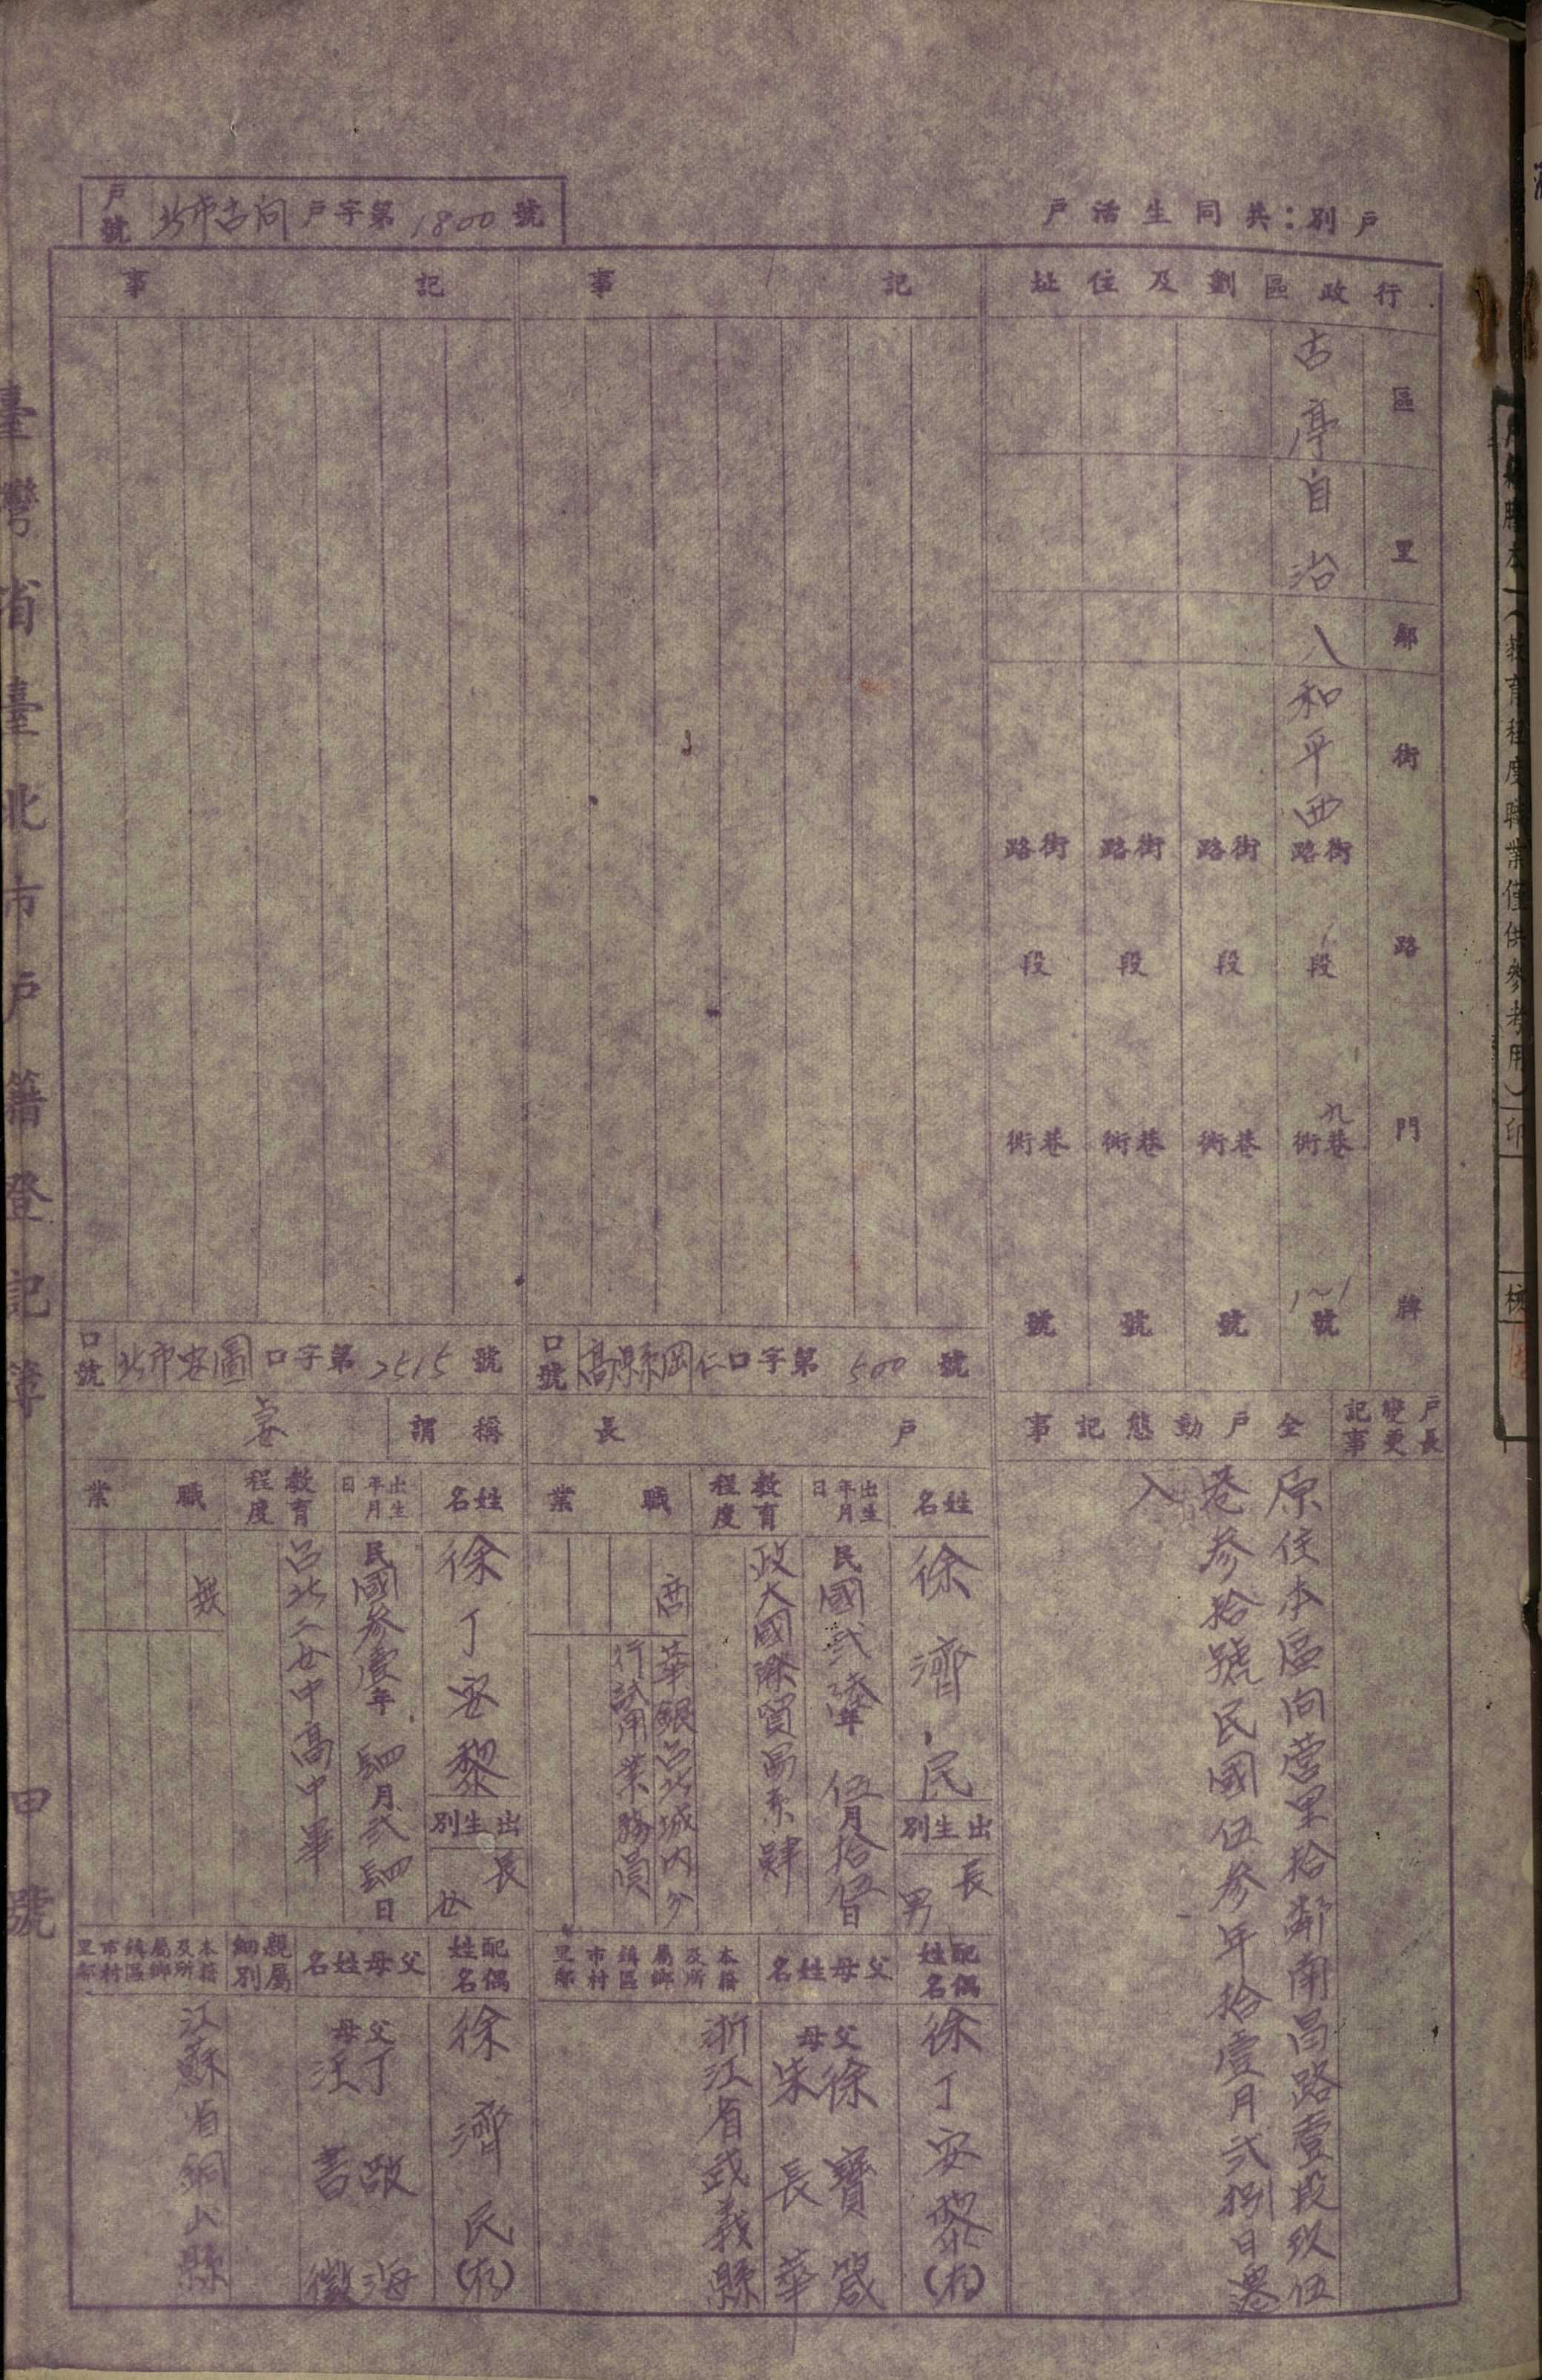 戶別：共同生活戶
戶號 北市古向戶字第1800號
行政區劃及住址
區 里 鄰 街路門牌
古亭 自治 八 和平西 街路 1段 九巷衖 1~1號
街路 段 巷衖 號
街路 段 巷衖 號
街路 段 巷衖 號
戶長變更記事
全戶動態記事
原住本區向營里拾鄰南昌路壹段玖伍
巷参拾號民國伍参年拾壹月弍捌日遷
入
記事
口號 高縣岡仁口字第500號
戶長
姓名 徐濟民
出生別 長男
出生年月日 民國弍陸年伍月拾伍日
教育程度 政大國際貿易系肄
職業 商 華銀台北城內分
行試用業務員
配偶姓名 徐丁安黎(存)
父母姓名
父 徐寶箴
母 朱長華
本籍及所屬鄉鎮區市村里鄰
浙江省武義縣
記事
口號 北市安圖口字第2515號
稱謂 妻
姓名 徐丁安黎
出生別 長女
出生年月日 民國参壹年肆月弍肆日
教育程度 台北二女中高中畢
職業 無
配偶姓名 徐濟民(存)
父母姓名
父 丁啟海
母 汪書徵
親屬細別
本籍及所屬鄉鎮區市村里鄰
江蘇省銅山縣
臺灣省臺北市戶籍登記簿 甲號
(教育程度職業僅供參考用)印